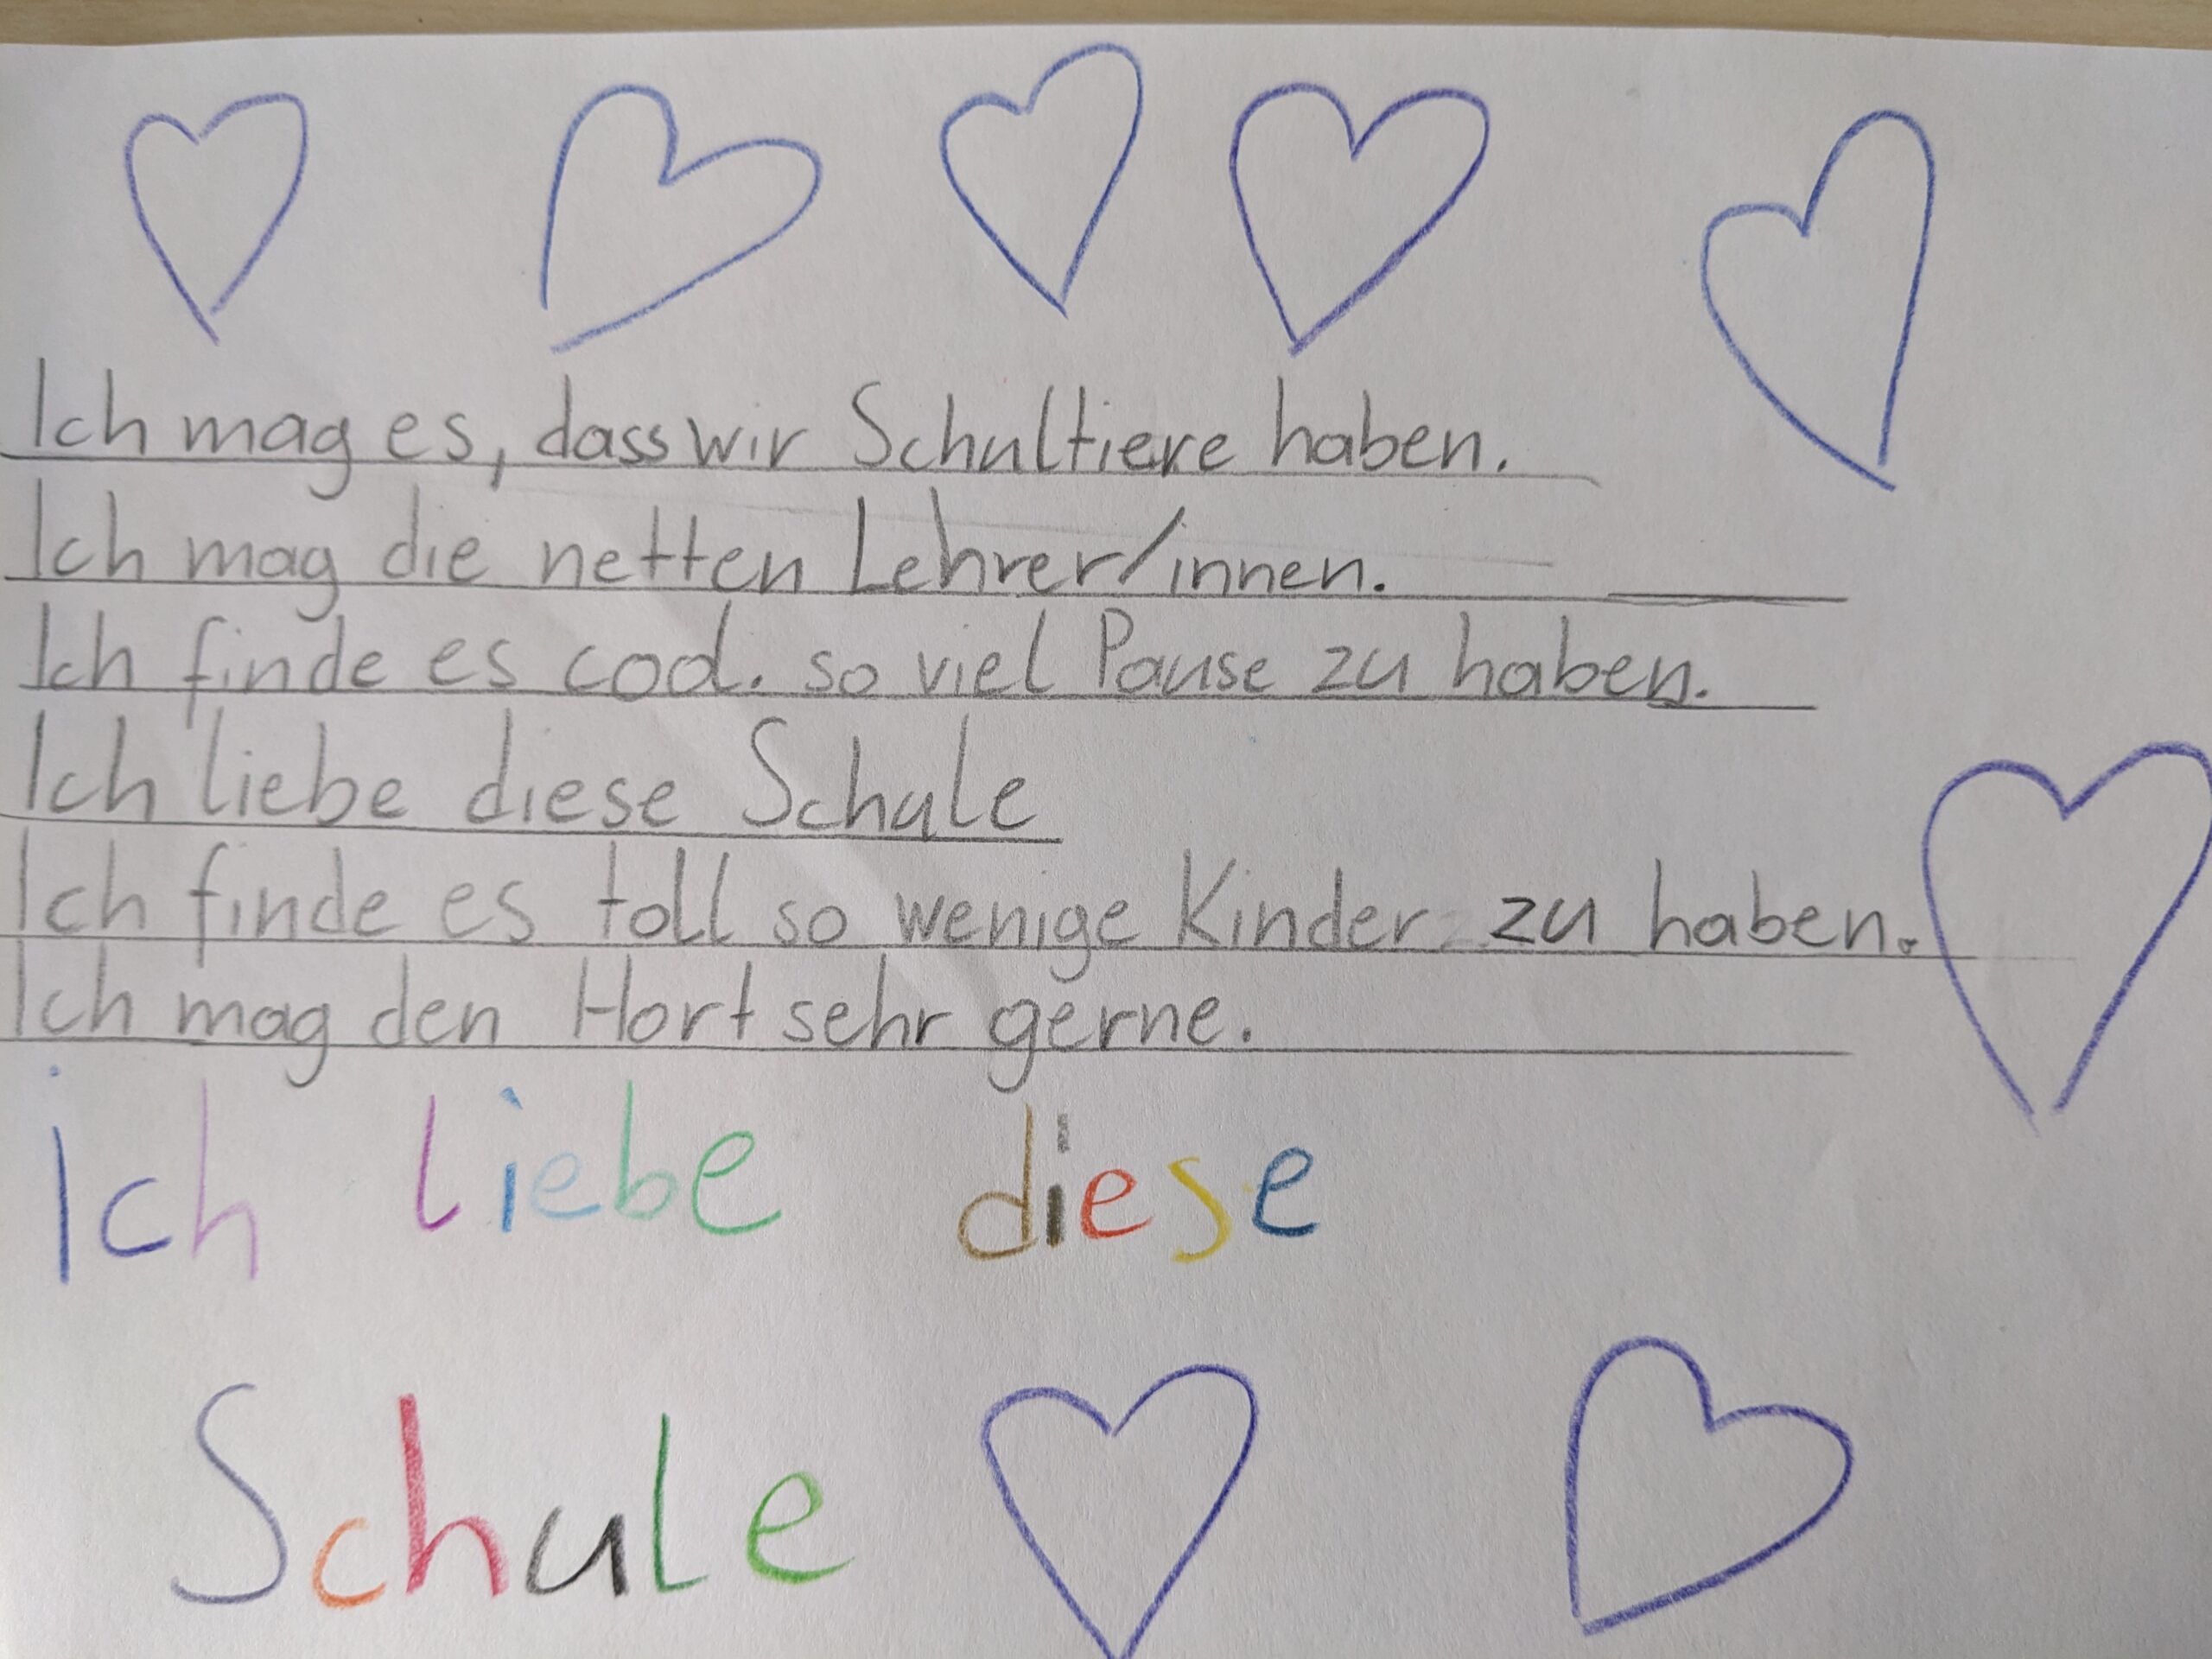 Ich mag es, dass wir Schultiere haben.
Ich mag die netten Lehrer/innen.
Ich finde es cool. so viel Pause zu haben.
Ich liebe diese Schule
Ich finde es toll so wenige Kinder zu haben.
Ich mag den Hort sehr gerne.
ich liebe diese
Schule